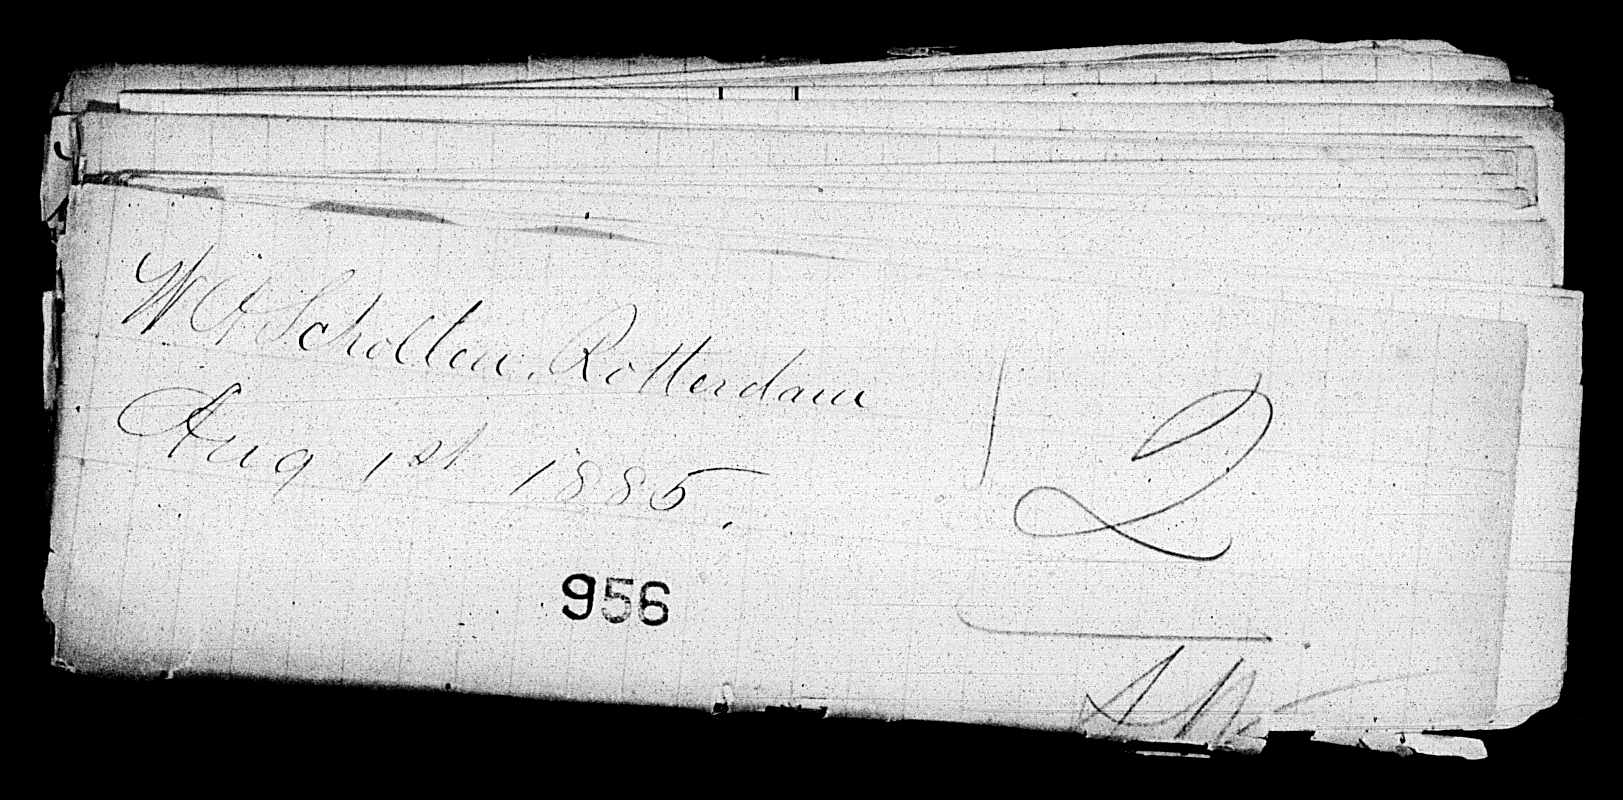 W A Scholten. Rotterdam
Aug 1st 1885.
2
956